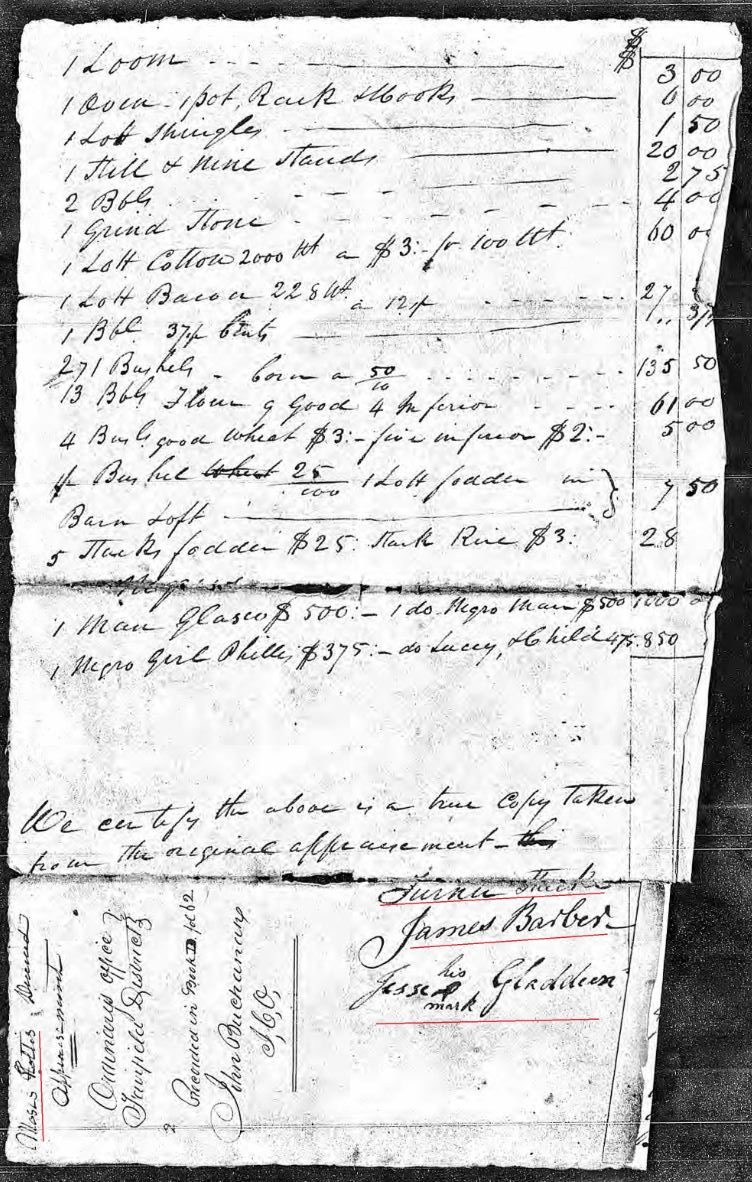 $
1 Loom 3 00
1 Oven - 1 pot, Rack & Hooks 6 00
1 Lott Shingles 1 50
1 Still & Nine Stands 20 00
2 Bbls 2 75
1 Grind Stone 4 00
1 Lott Cotton 2000 Wt a $3:- pr 100 Wt. 60 00
1 Lott Bacon 228 Wt. a 12½ 27
1 Bbl. 37½ Cents 37½
271 Bushels - Corn a 50 135 50
13 Bbls Flour 9 Good 4 Inferior 61 00
4 Bush good Wheat $3:- five inferior $2:- 5 00
Bushel 25/100 1 Lott fodder in
Barn Loft 7 50
5 Stacks fodder $25. Stack Rice $3: 28
1 Man Glasco $500:- 1 do. Negro Man $500 1000 0
1 Negro Girl Phillis $375:- do Lucey, & Child 475. 850
We certify the above is a true Copy Taken
from the original appraisement - this
Turner
James Barber
his
Jesse Gladden
mark
Moses Deceased
Appraisement
Ordinary's office
Fairfield District
Recorded in Book 62
John Buchanan